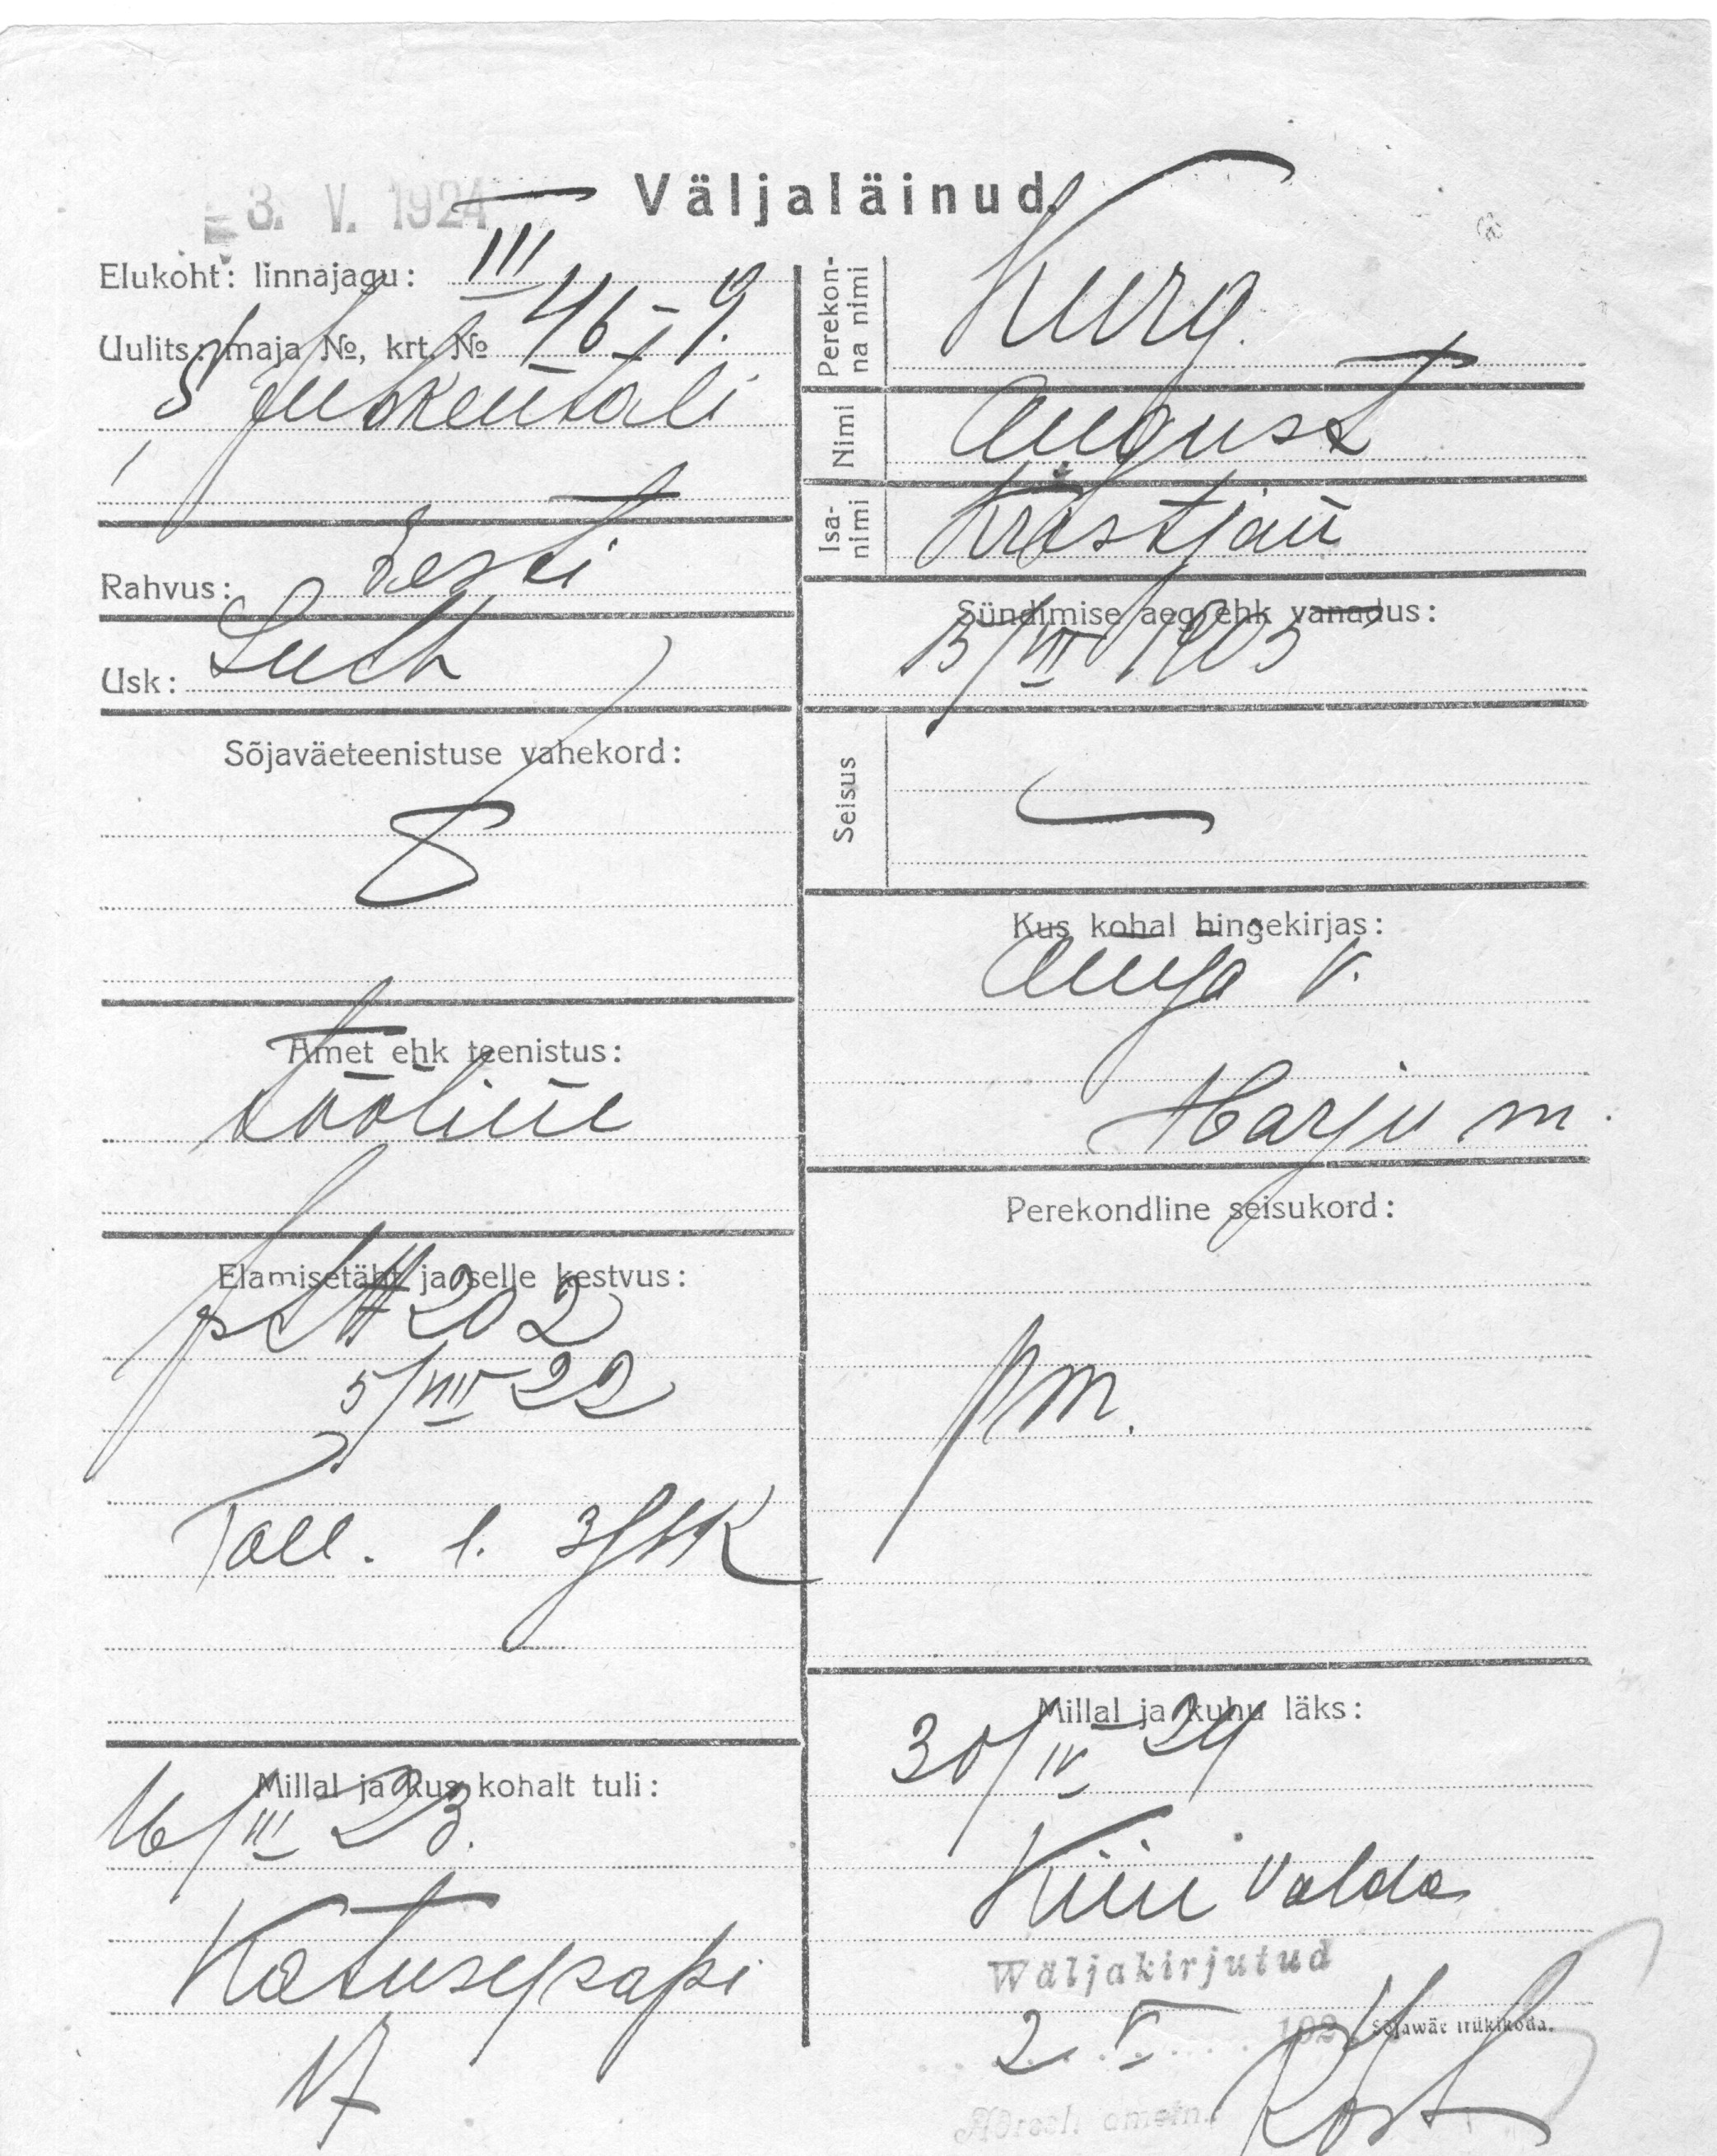 3. V. 1924
Väljaläinud.
Elukoht: linnajagu: III
Uulits, maja №, krt. № 46-9.
S Juhkentali
Rahvus: Eesti
Usk: Luth
Sõjaväeteenistuse vahekord:
Amet ehk teenistus:
tööline
Elamisetäht ja selle kestvus:
№ 202
5/VIII 22
Tall. l. 3 jsk
Millal ja kus kohalt tuli:
16/III 23.
Katusepapi
17
Perekonna nimi Kurg.
Nimi August
Isanimi Kristjan
Sündimise aeg ehk vanadus:
15/VII 1903
Seisus
Kus kohal hingekirjas:
v.
Harju m.
Perekondline seisukord:
pm.
Millal ja kuhu läks:
30/IV 24
Kiiu valda
Wäljakirjutud
2 V 192
Sõjawäe trükikoda.